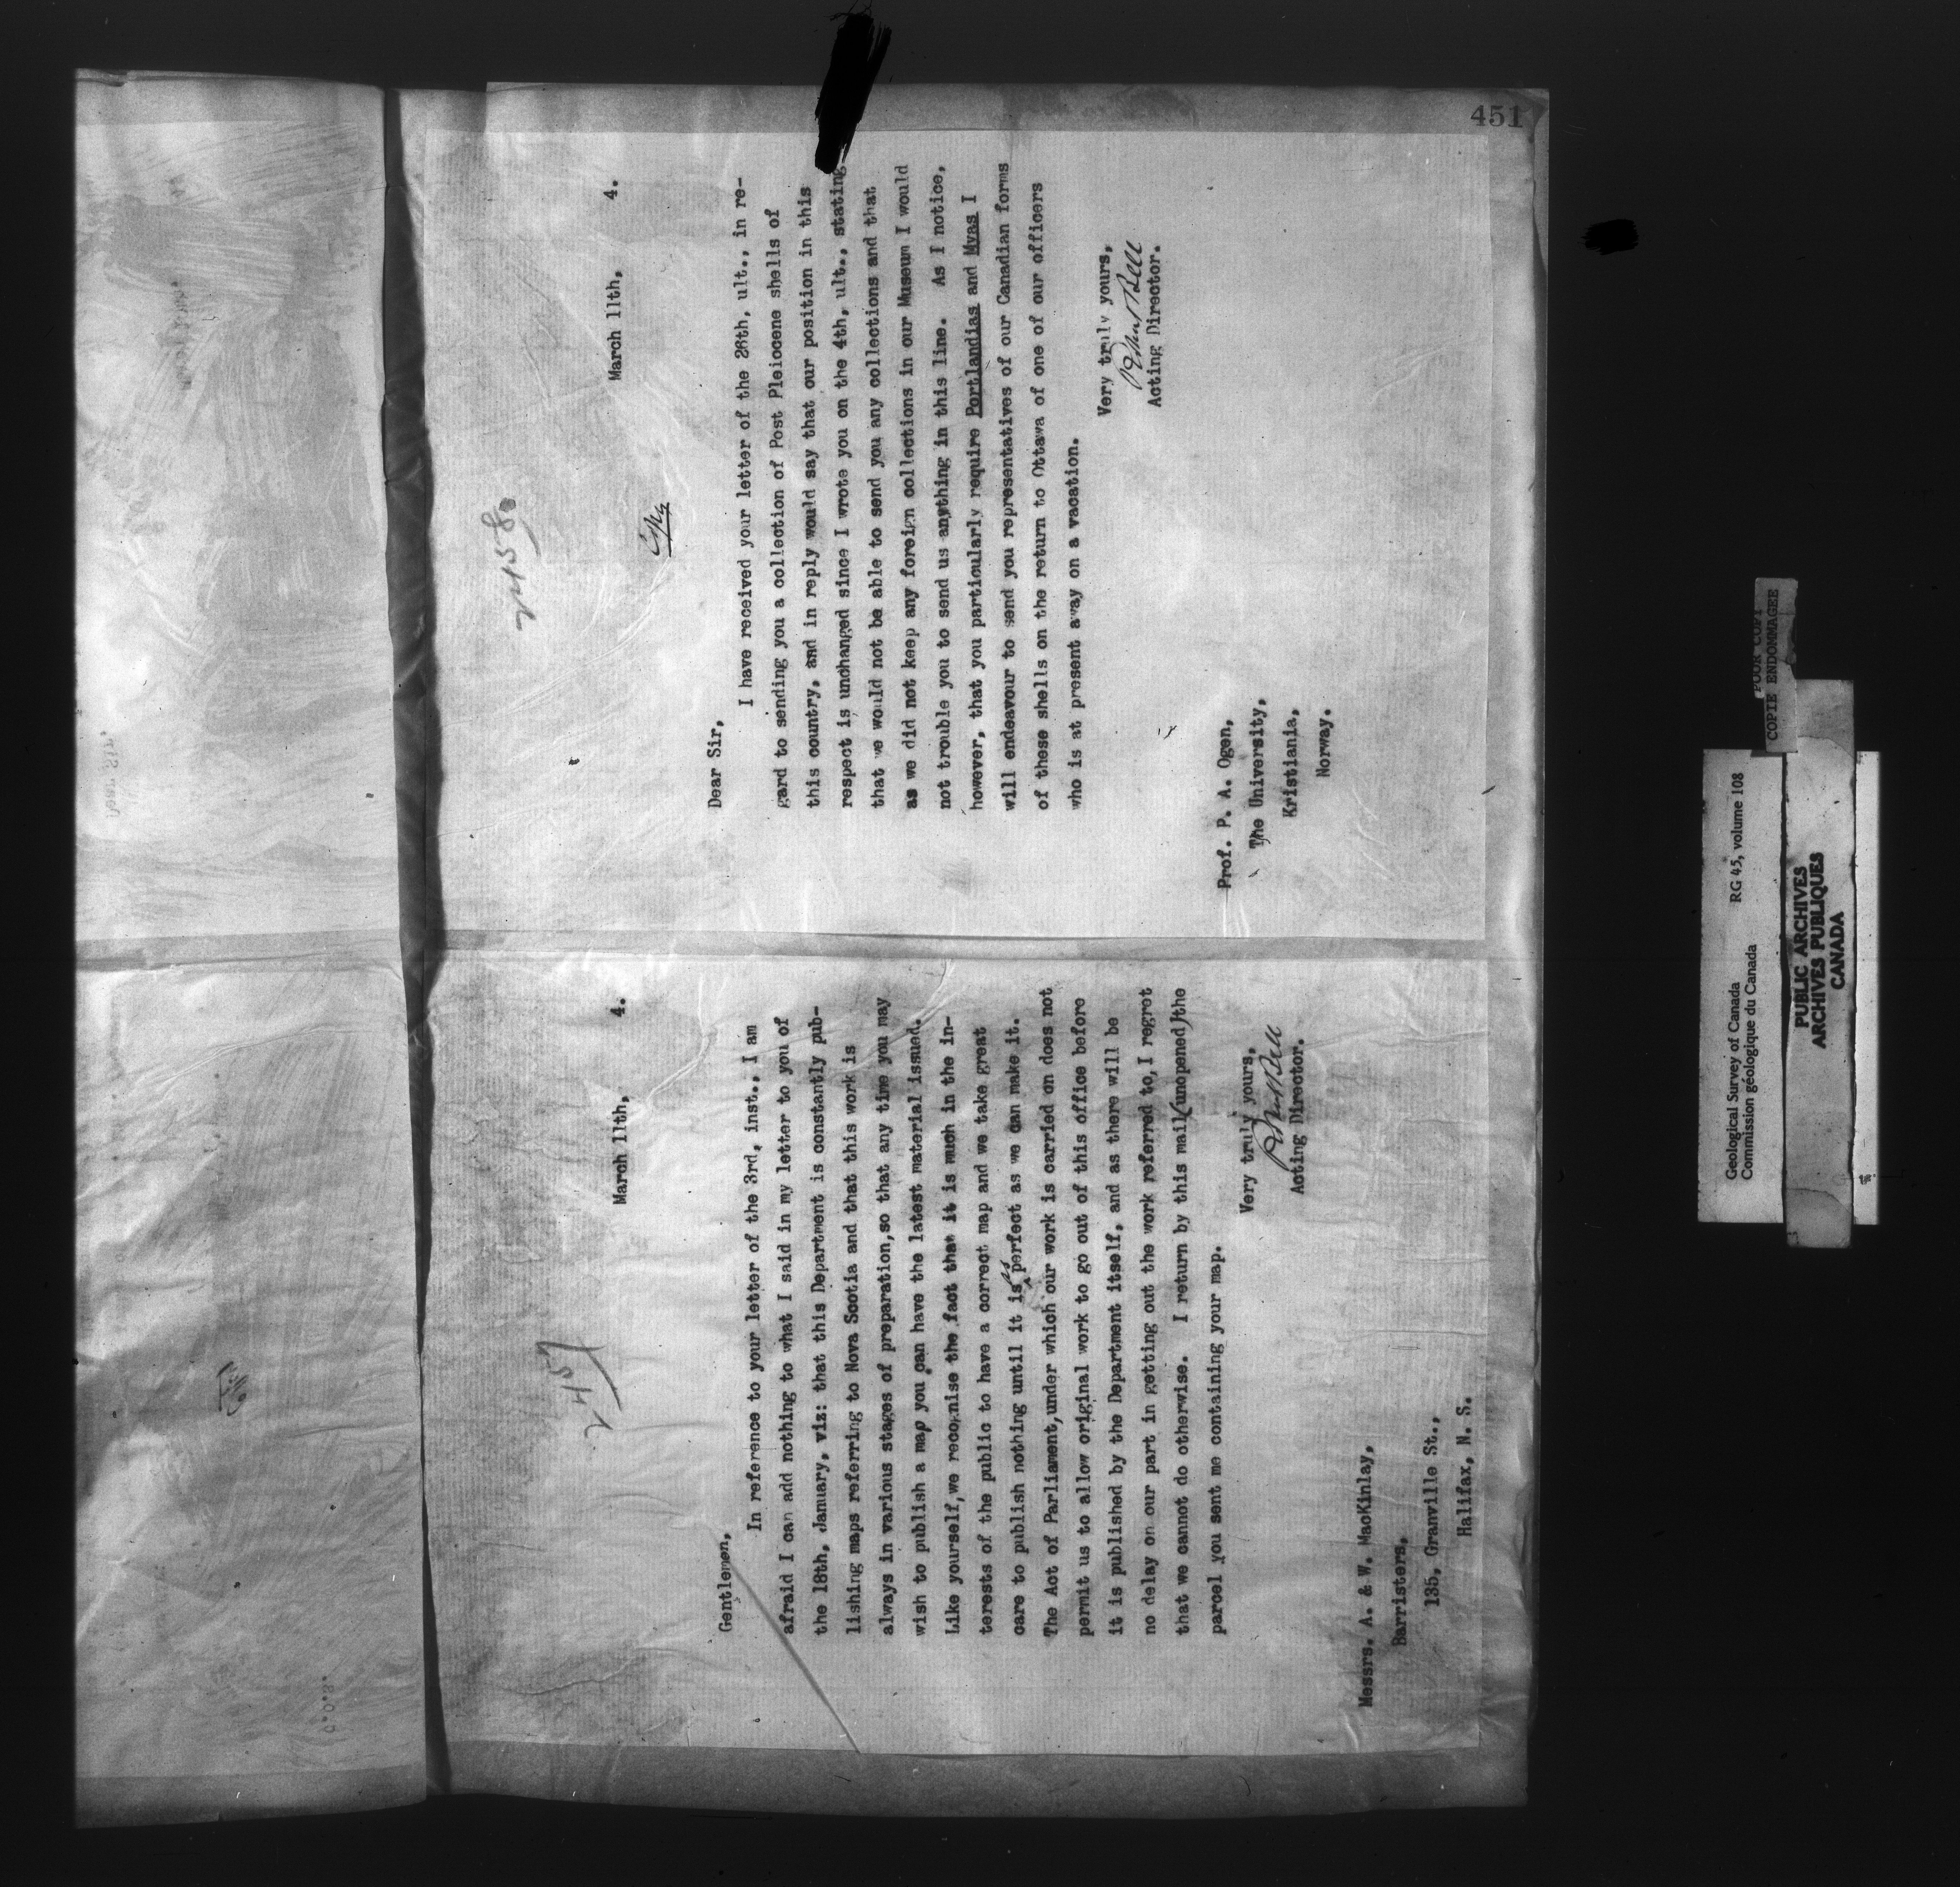 451
2457
March 11th,    4.
Gentlemen,
In reference to your letter of the 3rd, inst., I am
afraid I can add nothing to what I said in my letter to you of
the 18th, January, viz: that this Department is constantly pub-
lishing maps referring to Nova Scotia and that this work is
always in various stages of preparation, so that any time you may
wish to publish a map you can have the latest material issued.
Like yourself, we recognise the fact that it is much in the in-
terests of the public to have a correct map and we take great
care to publish nothing until it is as perfect as we can make it.
The Act of Parliament, under which our work is carried on does not
permit us to allow original work to go out of this office before
it is published by the Department itself, and as there will be
no delay on our part in getting out the work referred to, I regret
that we cannot do otherwise.  I return by this mail (unopened) the
parcel you sent me containing your map.
Very truly yours,
Robert Bell
Acting Director.
Messrs. A. & W. MacKinlay,
Barristers,
135, Granville St.,
Halifax, N. S.
2458
March 11th,    4.
Dear Sir,
I have received your letter of the 26th, ult., in re-
gard to sending you a collection of Post Pleiocene shells of
this country, and in reply would say that our position in this
respect is unchanged since I wrote you on the 4th, ult., stating
that we would not be able to send you any collections and that
as we did not keep any foreign collections in our Museum I would
not trouble you to send us anything in this line.  As I notice,
however, that you particularly require Portlandias and Myas I
will endeavour to send you representatives of our Canadian forms
of these shells on the return to Ottawa of one of our officers
who is at present away on a vacation.
Very truly yours,
Robert Bell
Acting Director.
Prof. P. A. Ogen,
The University,
Kristiania,
Norway.
Geological Survey of Canada    RG 45, volume 108
Commission géologique du Canada
POOR COPY
COPIE ENDOMMAGEE
PUBLIC ARCHIVES
ARCHIVES PUBLIQUES
CANADA